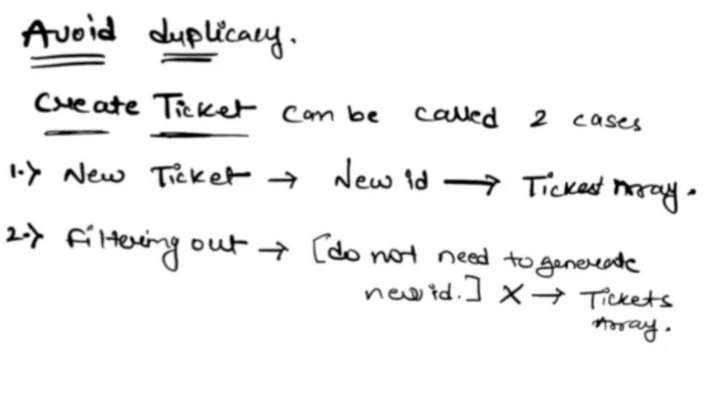 Avoid duplicacy.
Create Ticket can be called 2 cases
1.) New Ticket → New id → Ticket Array.
2.) Filtering out → [do not need to generate
new id.] X → Tickets
Array.